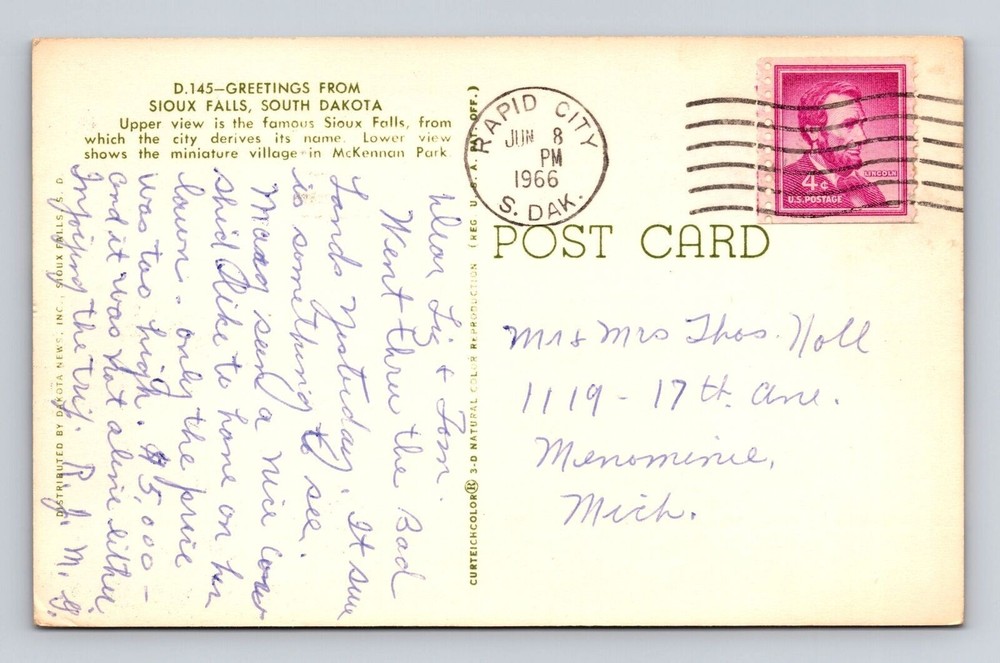 D.145—GREETINGS FROM
SIOUX FALLS, SOUTH DAKOTA
Upper view is the famous Sioux Falls, from
which the city derives its name. Lower view
shows the miniature village in McKennan Park.
Dear Liz + Tom.
Went thru the Bad
Lands yesterday. It sure
is something to see.
seen a nice cow
she'd like to have on her
lawn. only the price
was too high. $5,000 —
and it was not alive either.
Enjoying the trip. R. J. M. G.
DISTRIBUTED BY DAKOTA NEWS, INC., SIOUX FALLS, S. D.
CURTEICHCOLOR® 3-D NATURAL COLOR REPRODUCTION (REG. U. S. A. PAT. OFF.)
RAPID CITY
JUN 8
PM
1966
S. DAK.
LINCOLN
4¢
U.S. POSTAGE
POST CARD
Mr & Mrs Thos. Holl
1119 - 17th Ave.
Menominie,
Mich.